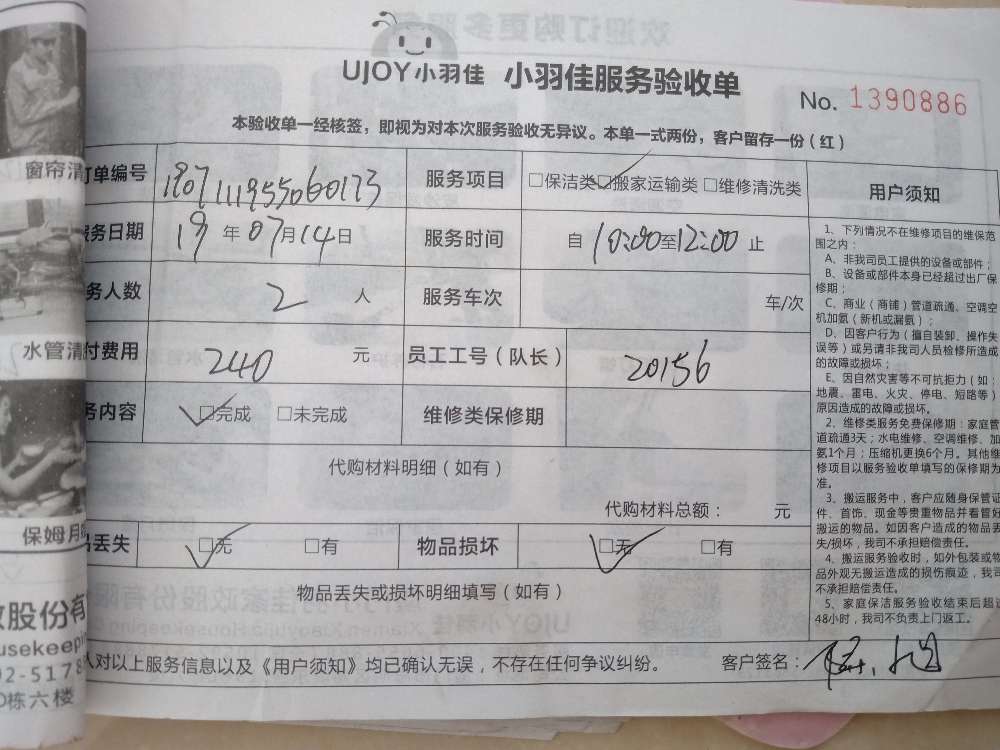 UJOY小羽佳 小羽佳服务验收单
No. 1390886
本验收单一经核签，即视为对本次服务验收无异议。本单一式两份，客户留存一份（红）
订单编号 1907111955060173 服务项目 □保洁类 □搬家运输类 □维修清洗类
服务日期 19 年 07 月 14 日 服务时间 自 10:00 至 12:00 止
务人数 2 人 服务车次 车/次
付费用 240 元 员工工号（队长） 20156
务内容 □完成 □未完成 维修类保修期
代购材料明细（如有）
代购材料总额： 元
丢失 □无 □有 物品损坏 □无 □有
物品丢失或损坏明细填写（如有）
人对以上服务信息以及《用户须知》均已确认无误，不存在任何争议纠纷。 客户签名：
用户须知
1、下列情况不在维修项目的维保范
围之内：
A、非我司员工提供的设备或部件；
B、设备或部件本身已经超过出厂保
修期；
C、商业（商铺）管道疏通、空调空
机加氨（新机或漏氨）；
D、因客户行为（擅自装卸、操作失
误等）或另请非我司人员检修所造成
的故障或损坏；
E、因自然灾害等不可抗拒力（如：
地震、雷电、火灾、停电、短路等）
原因造成的故障或损坏。
2、维修类服务免费保修期：家庭管
道疏通3天；水电维修、空调维修、加
氨1个月；压缩机更换6个月。其他维
修项目以服务验收单填写的保修期为
准。
3、搬运服务中，客户应随身保管证
件、首饰、现金等贵重物品并看管好
搬运的物品。如因客户造成的物品丢
失/损坏，我司不承担赔偿责任。
4、搬运服务验收时，如外包装或物
品外观无搬运造成的损伤痕迹，我司
不承担赔偿责任。
5、家庭保洁服务验收结束后超过
48小时，我司不负责上门返工。
窗帘清
水管清
保姆月
股份有
usekeepin
92-5178
栋六楼